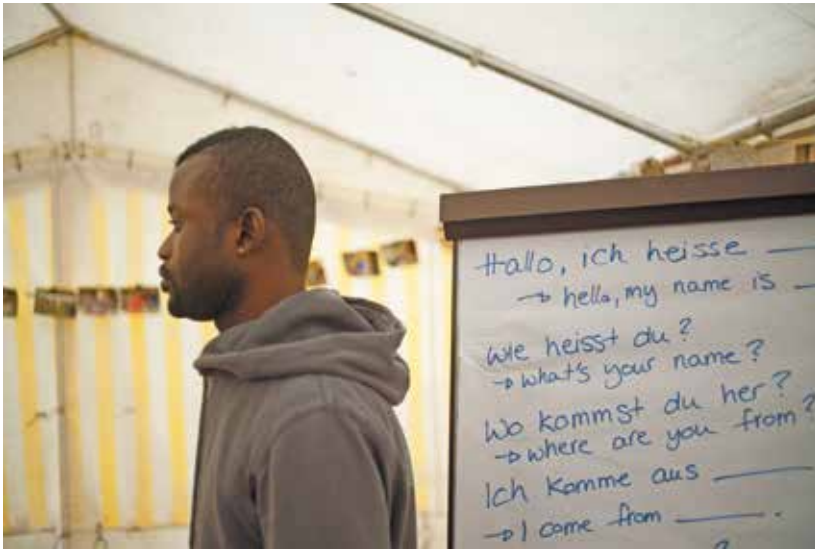 Hallo, ich heisse ___
→ hello, my name is _
Wie heisst du?
→ what's your name?
Wo kommst du her?
→ where are you from?
Ich komme aus ___
→ I come from ___.
?